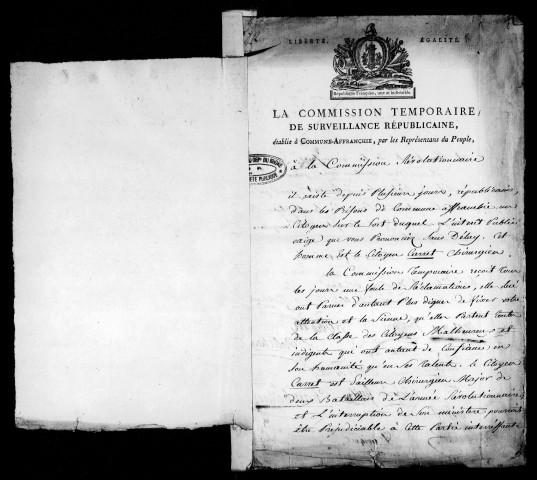 LIBERTÉ. ÉGALITÉ.
République Française, une et indivisible.
LA COMMISSION TEMPORAIRE,
DE SURVEILLANCE RÉPUBLICAINE,
établie à COMMUNE-AFFRANCHIE, par les Représentans du Peuple,
à la Commission Révolutionnaire
il existe depuis Plusieurs jours, républicains
dans les Prisons de Commune affranchie un
Citoyen sur le Sort duquel L'interet Public
exige que vous Prononciez Sans Délay. Cet
homme est le Citoyen Carret Chirurgien.
la Commission temporaire reçoit tous
les jours une foule de Réclamations, elle
ont Parues d'autant Plus dignes de fixer votre
attention et la Sienne, qu'elles Partent toute
de la Classe des Citoyens Malheureux et
indigents qui ont autant de Confiance en
Son humanité qu'en Ses talents. le Citoyen
Carret est d'ailleurs Chirurgien Major de
deux Bataillons de L'armée Révolutionnaire
et L'interruption de Son ministère pourrait
être Préjudiciable à Cette Partie interessante